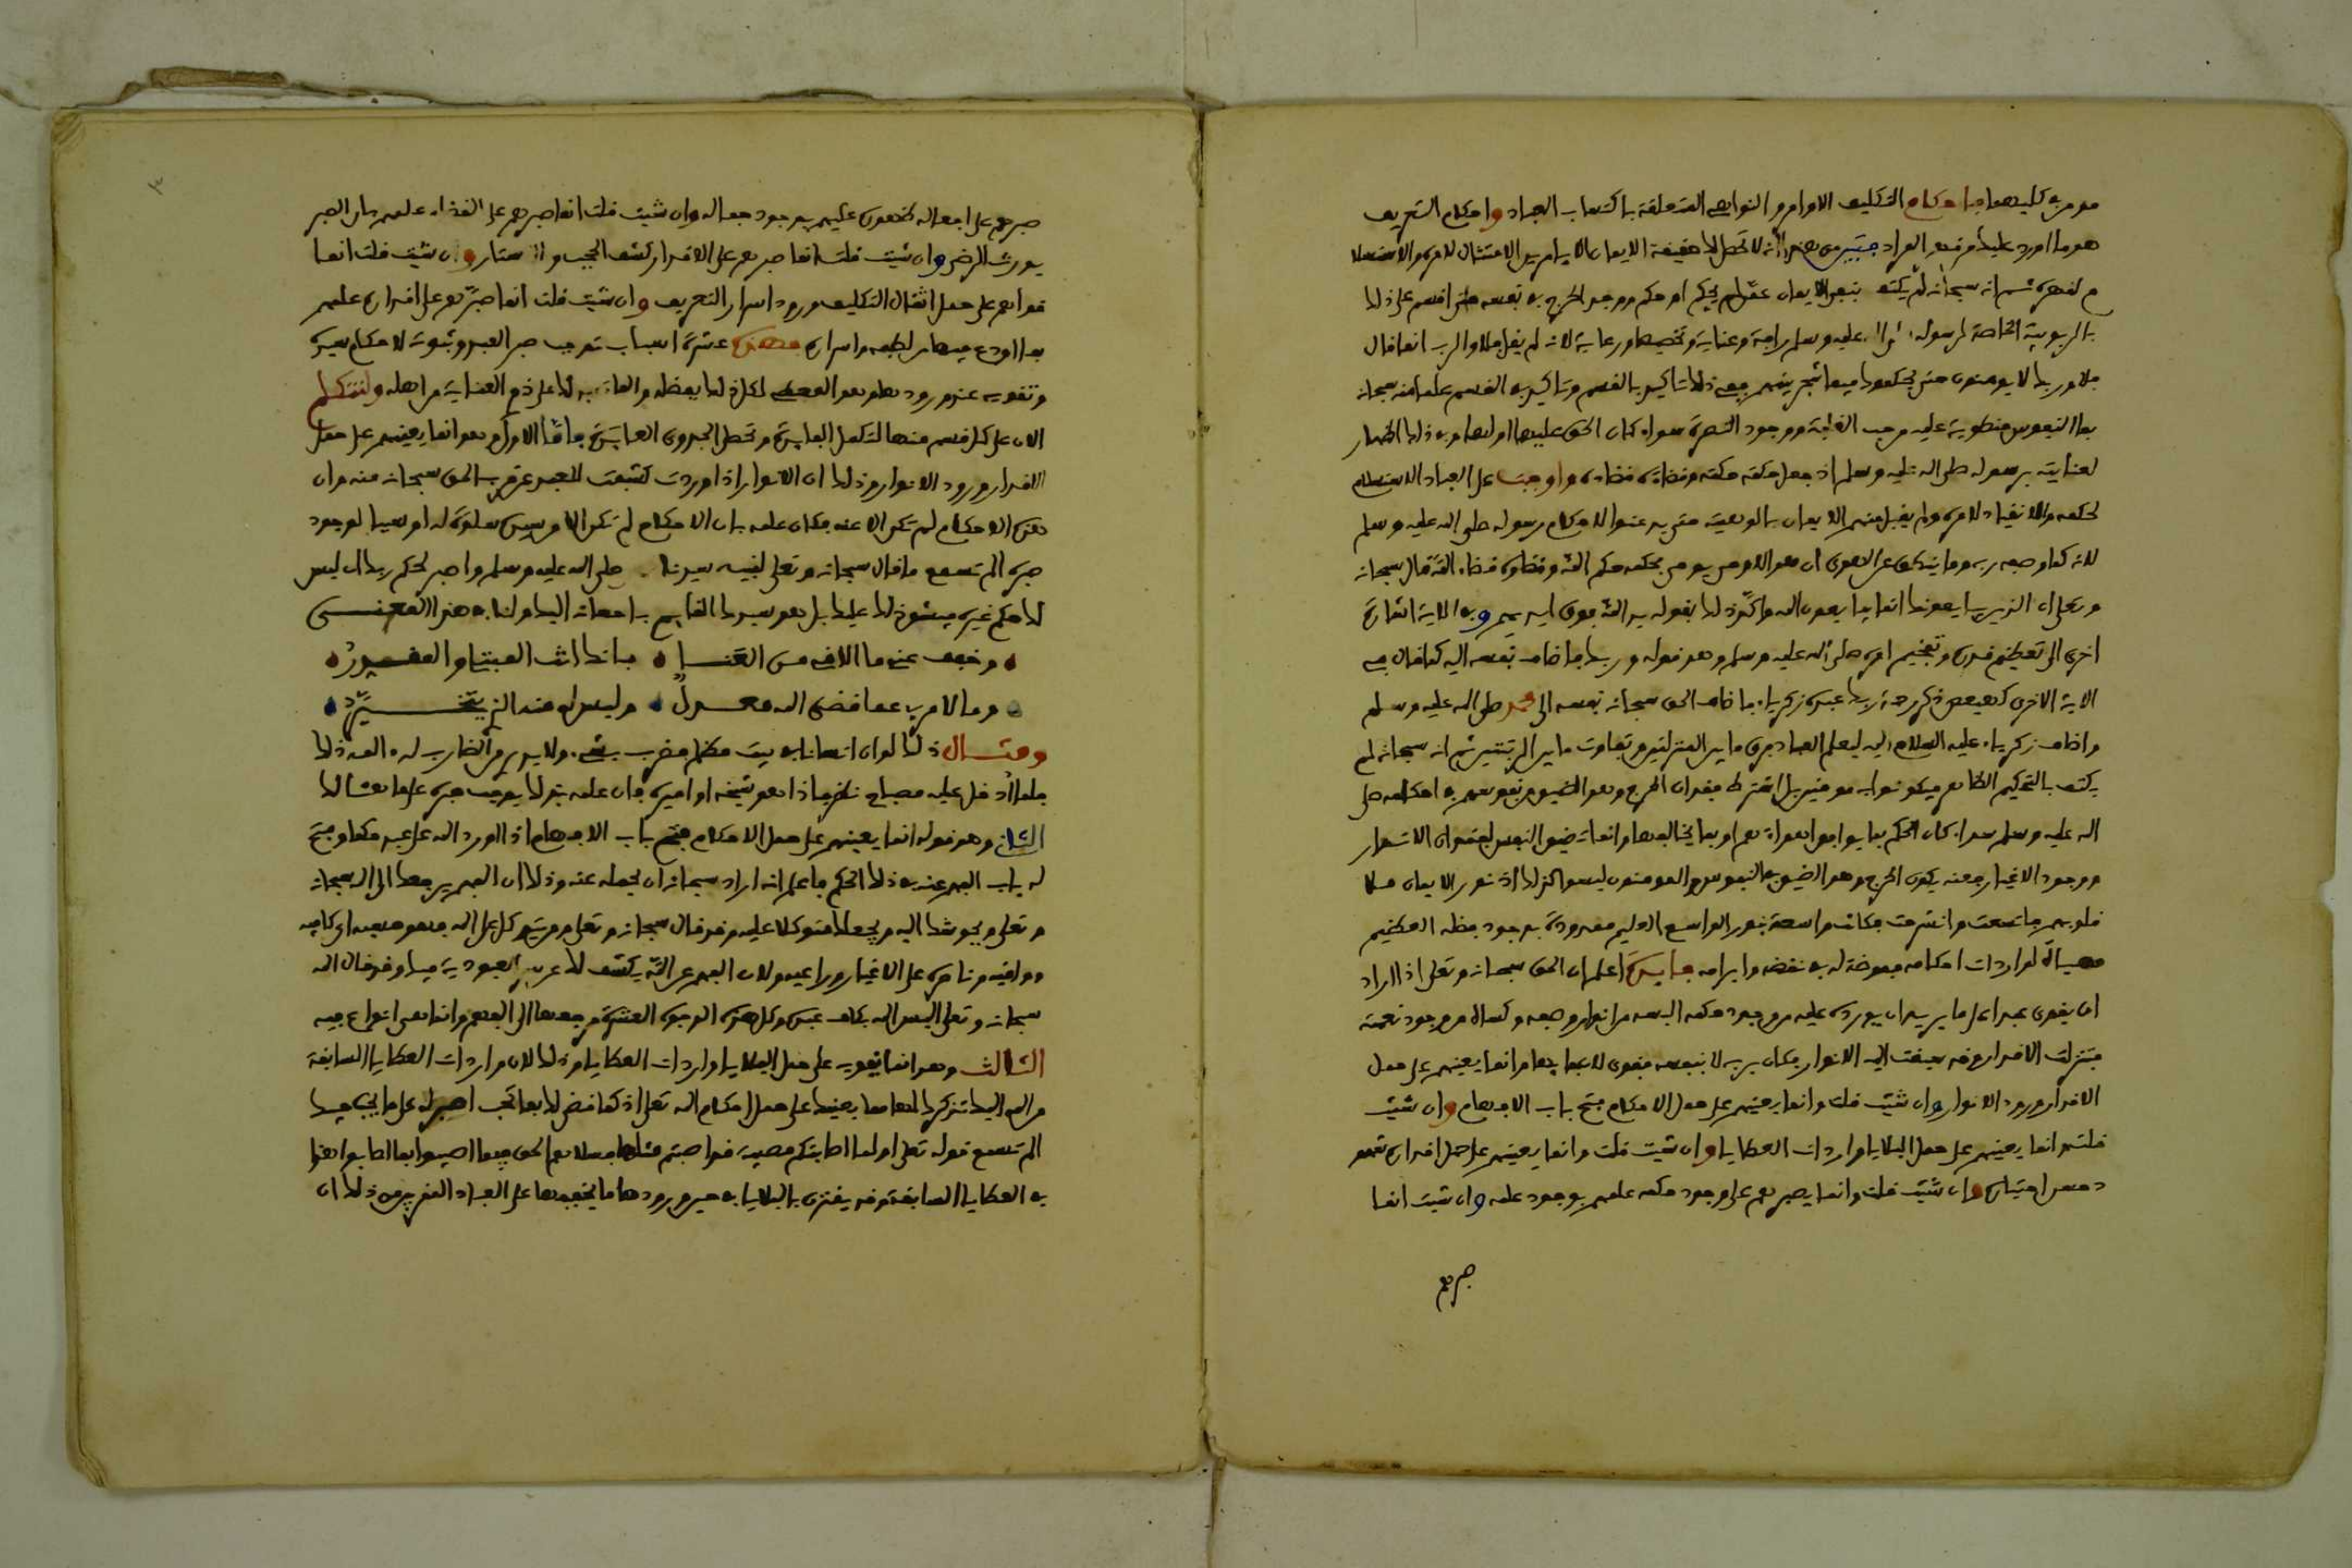 مومن في كليهما فاحكام التكليف الاوامر والنواهي المتعلقة باكتساب العباد واحكام التعريف
هو ما اورده عليك من فهم المراد فتبين من هذا انه لا تحصل لك حقيقة الايمان الا بامرين الامتثال لامره والاستسلا
م لقهره ثم انه سبحانه لم يكتف بنفي الايمان عمن لم يحكم او حكم ووجد الحرج في نفسه حتى اقسم على ذلك
بالربوبية الخاصة لرسوله صلى الله عليه وسلم رافة وعناية وتخصيصا ورعاية لانه لم يقل فلا والرب انما قال
فلا وربك لا يومنون حتى يحكموك فيما شجر بينهم ففي ذلك تاكيد بالقسم وتاكيد في القسم علما منه سبحانه
بما النفوس منطوية عليه من حب الغلبة ووجود النصرة سواء كان الحق عليها او لها وفي ذلك اظهار
لعنايته برسوله صلى الله عليه وسلم اذ جعل حكمه حكمه وقضاءه قضاءه واوجب على العباد الاستسلام
لحكمه والانقياد لامره ولم يقبل منهم الايمان بالوهيته حتى يذعنوا لاحكام رسوله صلى الله عليه وسلم
لانه كما وصفه ربه وما ينطق عن الهوى ان هو الا وحي يوحى فحكمه حكم الله وقضاوه قضاء الله قال سبحانه
وتعلى ان الذين يبايعونك انما يبايعون الله واكد ذلك بقوله يد الله فوق ايديهم وفي الاية اشارة
اخرى الى تعظيم قدره وتفخيم امره صلى الله عليه وسلم وهو قوله وربك فاضاف نفسه اليه كما قال في
الاية الاخرى كهيعص ذكر رحمة ربك عبده زكرياء فاضاف الحق سبحانه نفسه الى محمد صلى الله عليه وسلم
واضاف زكرياء عليه السلام اليه ليعلم العباد فرق ما بين المنزلتين وتفاوت ما بين الرتبتين ثم انه سبحانه لم
يكتف بالتحكيم الظاهر فيكونوا به مومنين بل اشترط فقدان الحرج وهو الضيق من نفوسهم في احكامه صلى
الله عليه وسلم سواء كان الحكم بما يوافق اهواءهم او بما يخالفها وانما تضيق النفس لفقدان الانوار
ووجود الاغيار فعنه يكون الحرج وهو الضيق في النفوس والمومنون ليسوا كذلك اذ نور الايمان ملا
قلوبهم فاتسعت وانشرحت فكانت واسعة بنور الواسع العليم ممدودة بوجود فضله العظيم
مهياة لواردات احكامه مفوضة له في نقضه وابرامه فايدة اعلم ان الحق سبحانه وتعلى اذا اراد
ان يقوي عبدا على ما يريد ان يورده عليه من وجود حكمه البسه من انوار وصفه وكساه من وجود نعته
فتنزلت الاقدار وقد سبقت اليه الانوار فكان بربه لا بنفسه فقوي لاعبائها وانما يعينهم على حمل
الاقدار ورود الانوار وان شئت قلت وانما يعينهم على حمل الاحكام فتح باب الافهام وان شئت
قلت وانما يعينهم على حمل البلايا واردات العطايا وان شئت قلت وانما يعينهم على حمل اقداره شهو
د حسن اختياره وان شئت قلت وانما يصبرهم على وجود حكمه علمهم بوجود علمه وان شئت انما
صبرهم
صبرهم على افعاله ظهوره عليهم بوجود جماله وان شئت قلت انما صبرهم على القضاء علمهم بان الصبر
يورث الرضى وان شئت قلت انما صبرهم على الاقدار كشف الحجب والاستار وان شئت قلت انما
قواهم على حمل اثقال التكليف ورود اسرار التعريف وان شئت قلت انما صبرهم على اقداره علمهم
بما اودع فيها من لطفه وابراره فهذه عشرة اسباب توجب صبر العبد وثبوته لاحكام سيده
وتقويه عند ورودها وهو المعطي لكل ذلك بفضله والمان بذلك على ذوي العناية من اهله ولنتكلم
الان على كل قسم منها لتكمل الفايدة وتحصل الجدوى العايدة فاما الاول وهو انما يعينهم على حمل
الاقدار ورود الانوار وذلك ان الانوار اذا وردت كشفت للعبد عن قرب الحق سبحانه منه وان
هذه الاحكام لم تكن الا عنه فكان علمه بان الاحكام لم تكن الا من سيده سلوة له او سببا لوجود
صبره الم تسمع ما قال سبحانه وتعلى لنبيه سيدنا صلى الله عليه وسلم واصبر لحكم ربك اي ليس
لك حكم غيره فيشق ذلك عليك بل هو سيدك القايم باحسانه اليك ولنا في هذا المعنى
وخفف عني ما الاقي من العنا فانك انت المبتلي والمقدر
وما لامرئ عما قضى الله معدل وليس له منه الذي يتخير
ومثال ذلك لو ان انسانا في بيت مظلم فضرب بشيء ولا يدري من الضارب له في المه ذلك
فلما ادخل عليه مصباح نظر فاذا هو شيخه او اميره فان علمه بذلك يوجب صبره على ما هنالك
الثاني وهو قوله انما يعينهم على حمل الاحكام فتح باب الافهام اذا اورد الله على عبد حكما وفتح
له باب الفهم عنه في ذلك الحكم فاعلم انه اراد سبحانه ان يحمله عنه وذلك ان الفهم يرجعك الى الله سبحانه
وتعلى ويحوشك اليه ويجعلك متوكلا عليه وقد قال سبحانه وتعلى ومن يتوكل على الله فهو حسبه اي كافيه
وواقيه وناصره على الاغيار وراعيه ولان الفهم عن الله يكشف لك عن سر العبودية فيك وقد قال الله
سبحانه وتعلى اليس الله بكاف عبده وكل هذه الوجوه العشرة مرجعها الى الفهم وانما هي انواع فيه
الثالث وهو انما يقويه على حمل البلايا واردات العطايا وذلك لان واردات العطايا السابقة
من الله اليك تذكرك لها مما يعينك على حمل احكام الله تعلى اذ كما قضى لك بما تحب اصبر له على ما يحب فيك
الم تسمع قوله تعلى اولما اصابتكم مصيبة قد اصبتم مثليها فسلاهم الحق فيما اصيبوا بما اصابوا هذا
في العطايا السابقة وقد يقترن بالبلايا في حين ورودها ما يخففها على العباد المقربين من ذلك ان